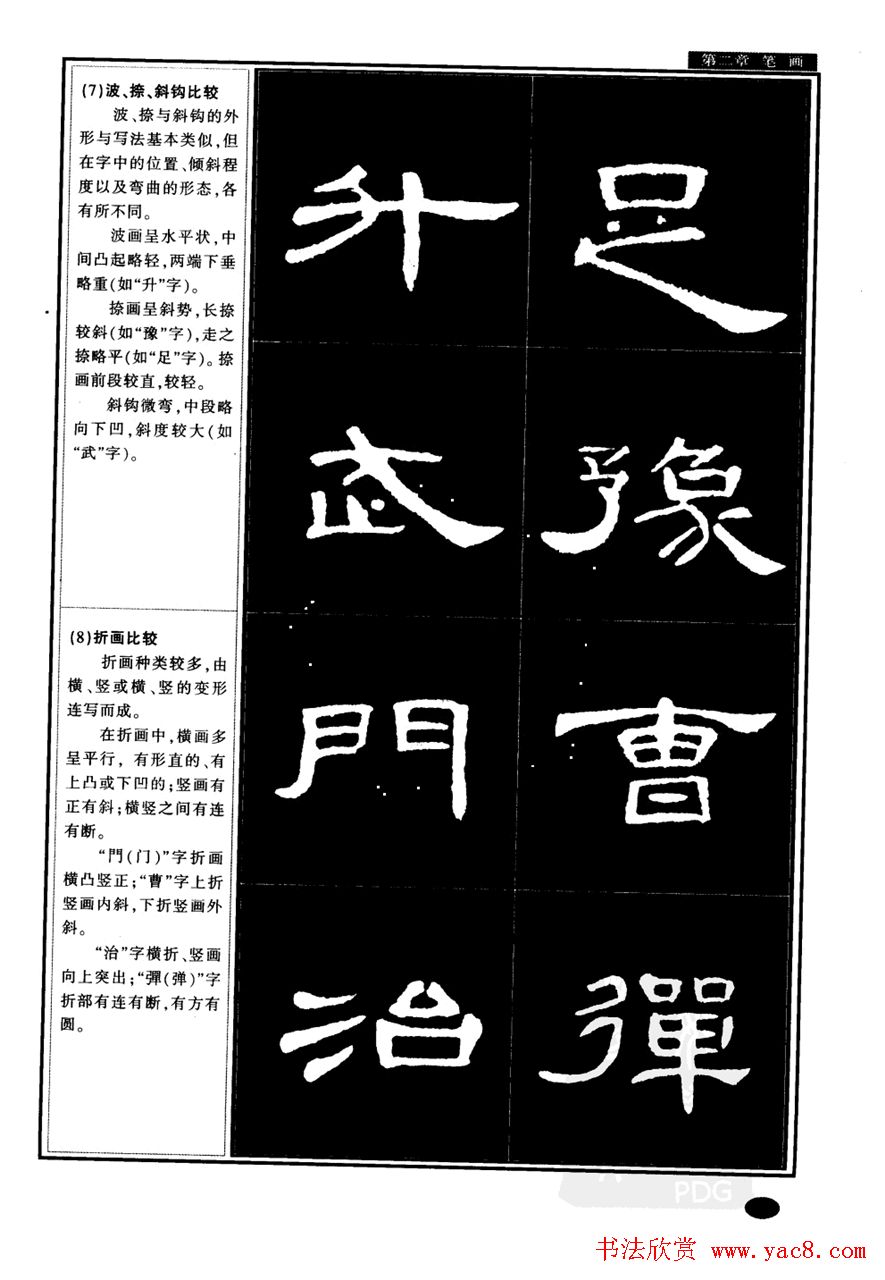 第二章 笔 画
(7)波、捺、斜钩比较
波、捺与斜钩的外
形与写法基本类似,但
在字中的位置、倾斜程
度以及弯曲的形态,各
有所不同。
波画呈水平状,中
间凸起略轻,两端下垂
略重(如“升”字)。
捺画呈斜势,长捺
较斜(如“豫”字),走之
捺略平(如“足”字)。捺
画前段较直,较轻。
斜钩微弯,中段略
向下凹,斜度较大(如
“武”字)。
(8)折画比较
折画种类较多,由
横、竖或横、竖的变形
连写而成。
在折画中,横画多
呈平行,有形直的、有
上凸或下凹的;竖画有
正有斜;横竖之间有连
有断。
“門(门)”字折画
横凸竖正;“曹”字上折
竖画内斜,下折竖画外
斜。
“治”字横折、竖画
向上突出;“彈(弹)”字
折部有连有断,有方有
圆。
升 足
武 豫
門 曹
治 彈
PDG
书法欣赏 www.yac8.com